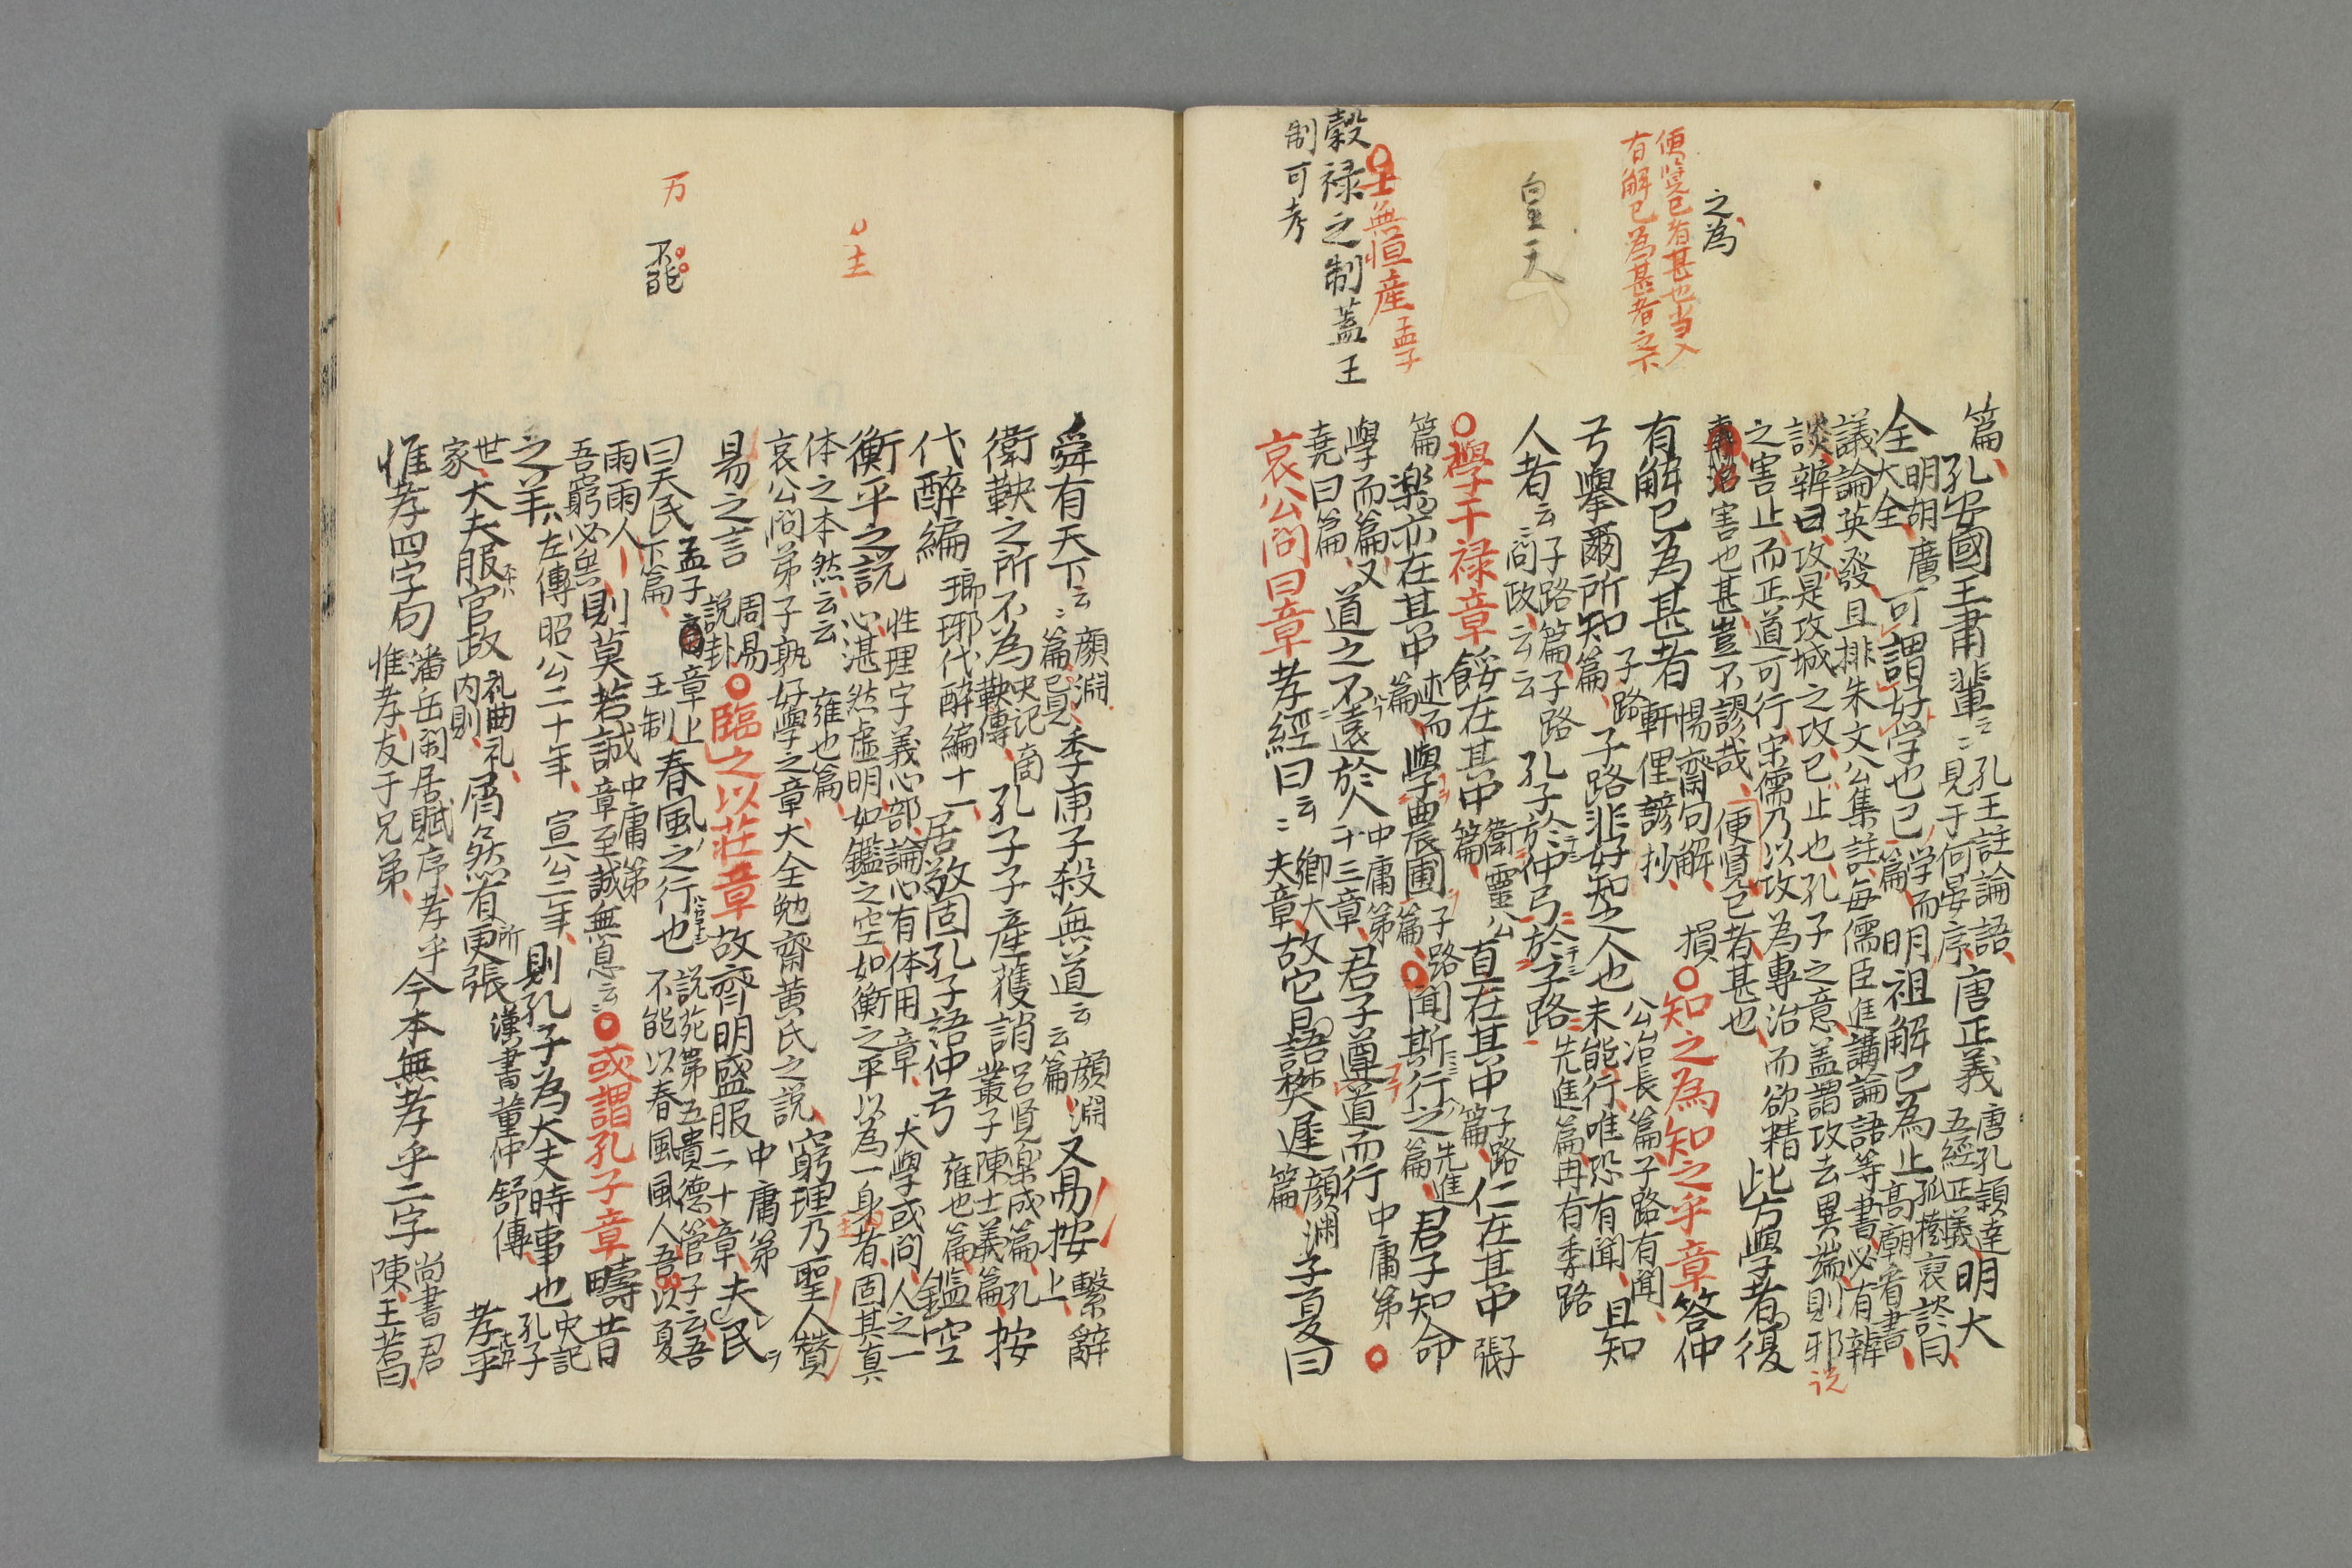 之為
便覧已者甚也当入
有解已為甚者之下
皇天
士無恒産孟子
穀禄之制蓋王
制可考
篇孔安國王肅輩云云孔王註論語見于何晏序唐正義唐孔頴達五經正義明大
全明胡廣大全可謂好学也已学而篇明祖解已為止孤樹裒談曰高廟看書
議論英發且排朱文公集註毎儒臣進講論語等書必有辨
談辨曰攻是攻城之攻已止也孔子之意蓋謂攻去異端則邪説
之害止而正道可行宋儒乃以攻為專治而欲精此方學者復
害也甚豈不謬哉便覧已者甚也
有解已為甚者惕齋句解軒俚諺抄損知之為知之乎章答仲
弓擧爾所知篇子路子路非好知之人也公冶長篇子路有聞未能行唯恐有聞且知
人者云云子路篇子路問政云云孔子於仲弓於子路先進篇冉有季路
學干禄章餒在其中衛靈公篇直在其中子路篇仁在其中子張
篇楽亦在其中述而篇學農圃子路篇聞斯行之先進篇君子知命
學而篇又堯曰篇道之不遠於人中庸第十三章君子遵道而行中庸第
哀公問曰章孝經曰云云卿大夫章故它日語樊遲顔渊篇子夏曰
主
万
不能
舜有天下云云顔淵篇季康子殺無道云云顔淵篇又易按繋辭上
衛鞅之所不為史記商鞅傳孔子子産獲誚呂覧楽成篇孔叢子陳士義篇按
代醉編瑯琊代醉編十一居敬固孔子語仲弓雍也篇鑑空
衡平之説性理字義心部論心有体用章大學或問人之一心湛然虚明如鑑之空如衡之平以為一身者固其真
体之本然云云雍也篇
哀公問弟子孰好學之章大全勉齋黄氏之説窮理乃聖人賛
易之言周易説卦臨之以荘章故齊明盛服中庸第二十章夫民
曰天民孟子下篇章上王制春風之行也説苑第五貴徳管子云吾不能以春風風人吾以夏
雨雨人
吾窮必矣則莫若誠中庸第章至誠無息云云或謂孔子章疇昔
之羊左傳昭公二十年宣公二年則孔子為大夫時事也史記孔子
世家大夫服官政礼曲礼内則屑然有所更張漢書董仲舒傳孝乎
惟孝四字句潘岳閑居賦序孝乎惟孝友于兄弟今本無孝乎二字尚書君陳王若曰